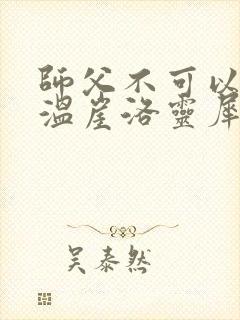 師父不可以
溫崖洛靈犀
吳泰然